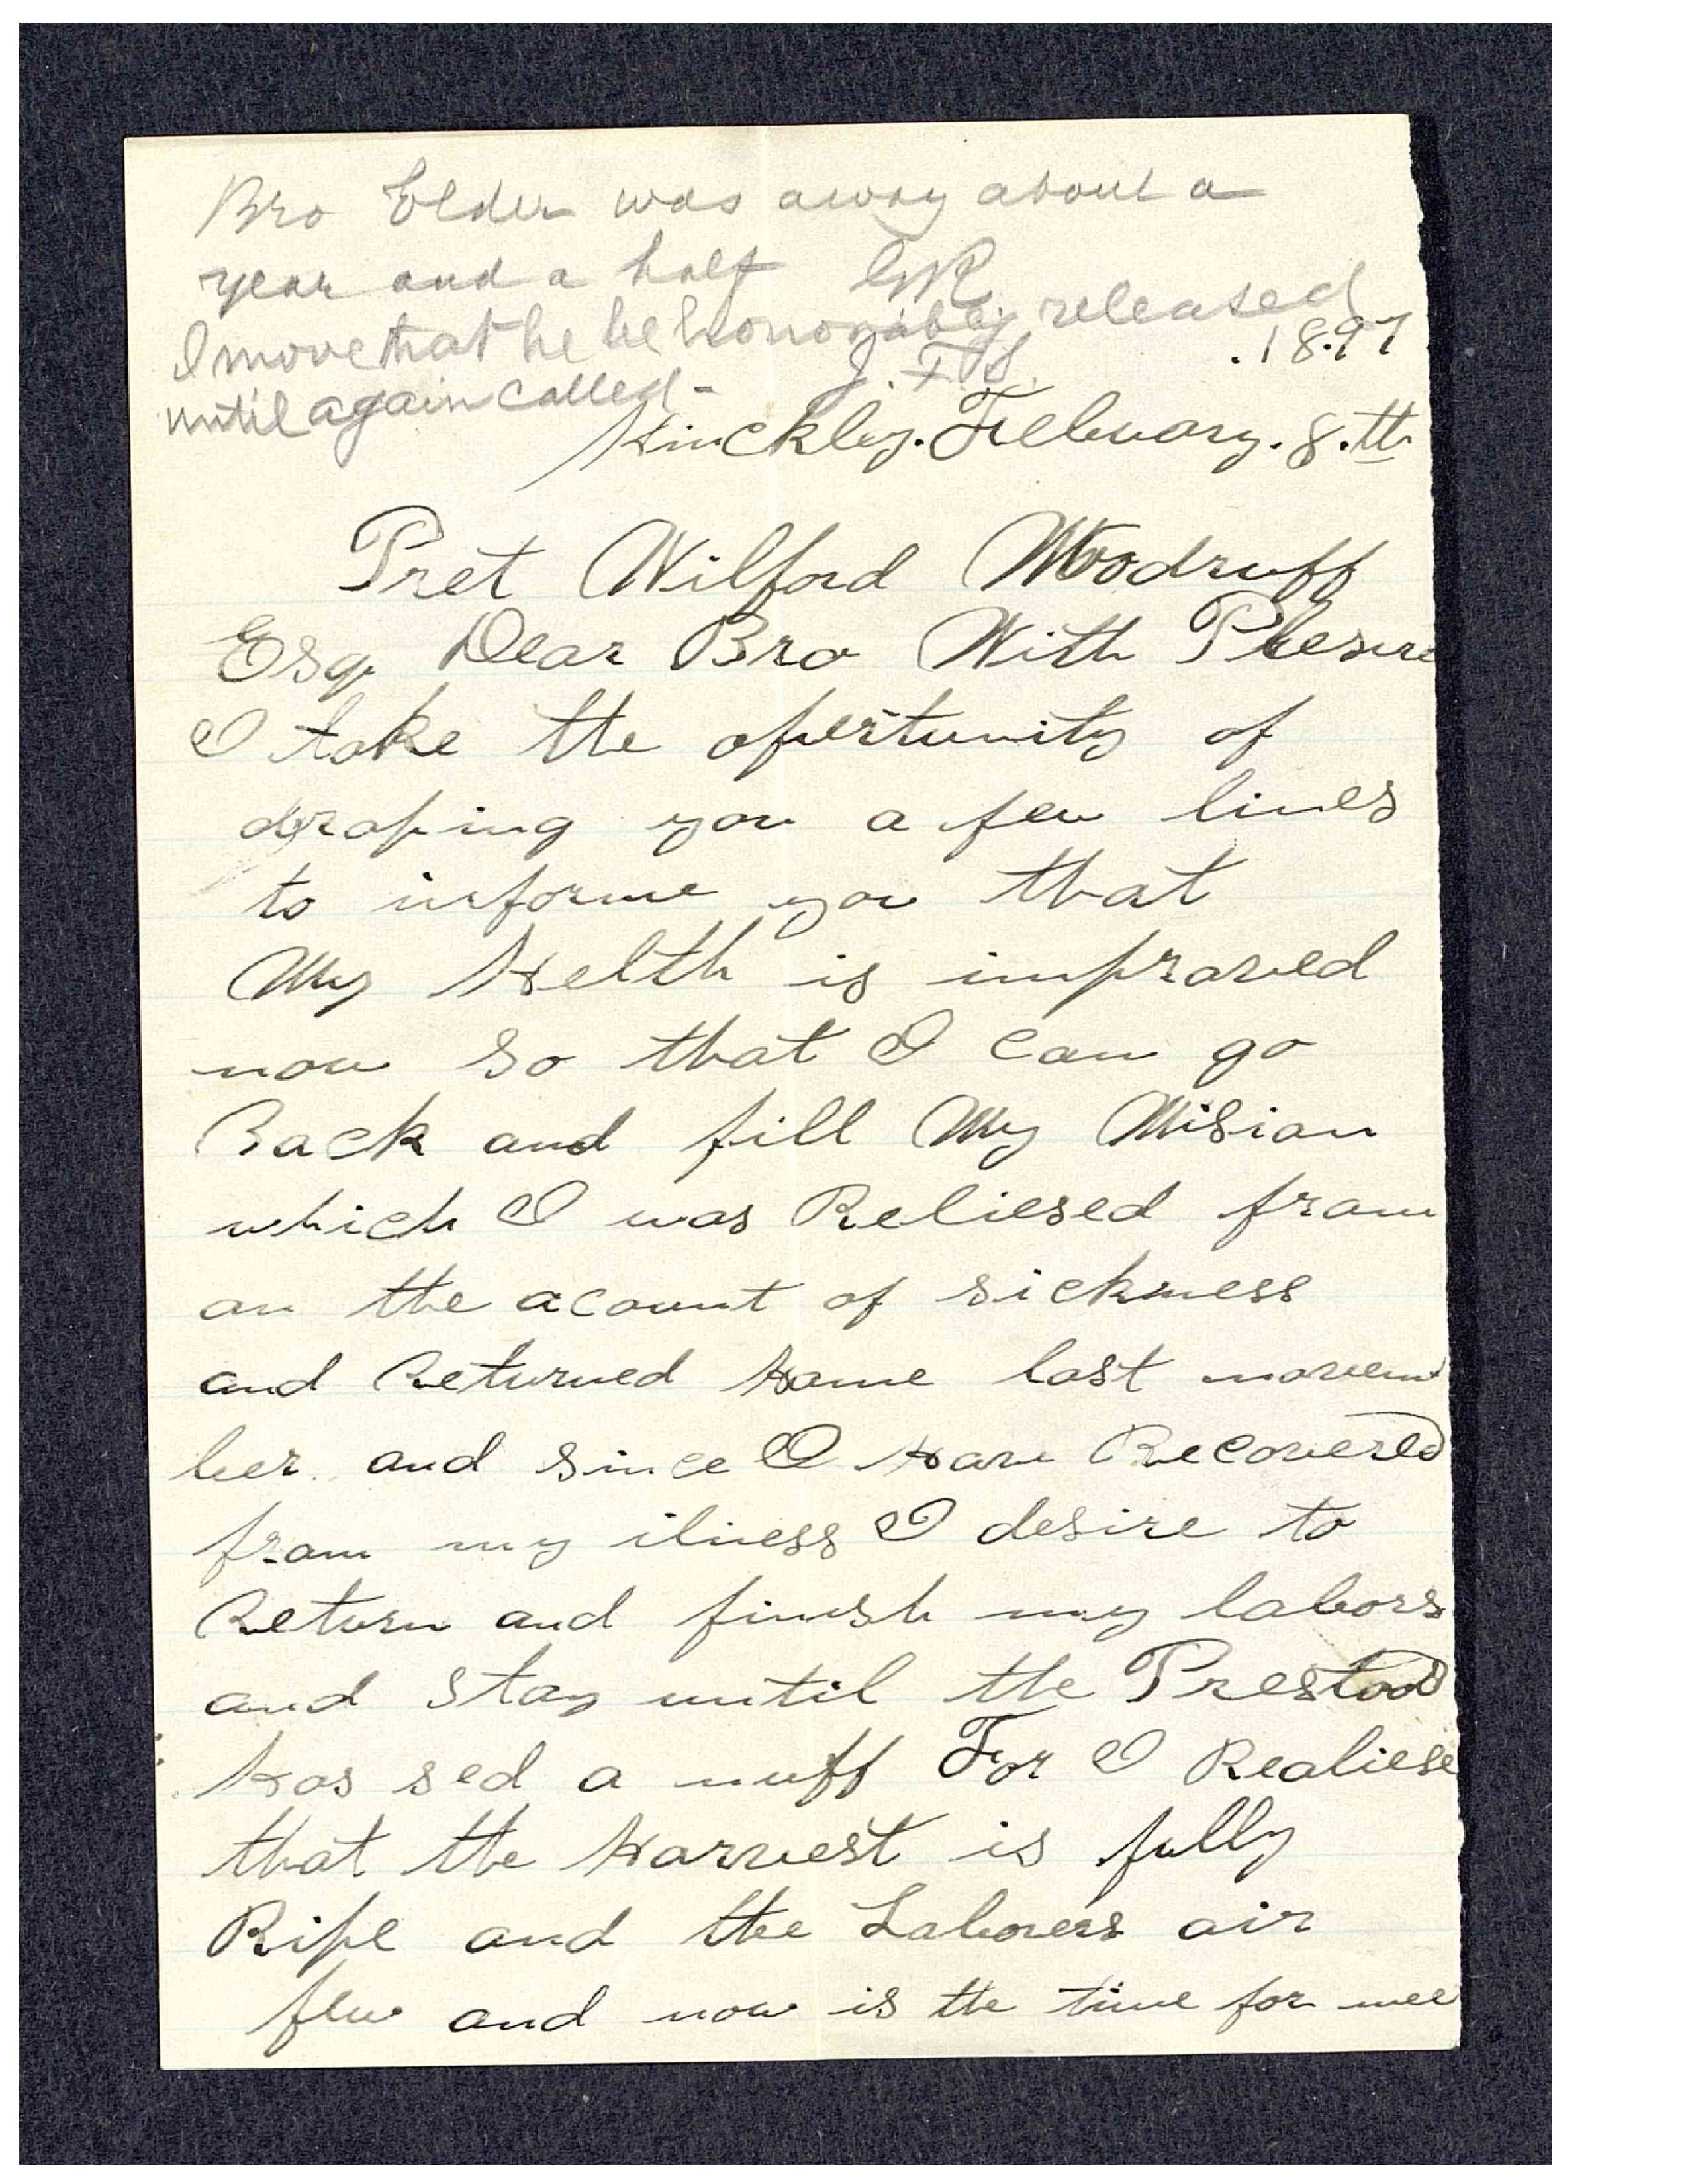 Bro Elder was away about a
year and a half GR
I move that he be honorably released
until again called - J. F. S.
.1897
Hinckley. February. 8.th
Pret Wilford Woodruff
Esq Dear Bro With Plesure
I take the opertunity of
droping you a few lines
to informe you that
My Helth is improved
now so that I can go
Back and fill My Mision
which I was Reliesed from
on the acount of sickness
and Returned Home last novem
ber. and since I Have Recovered
from my ilness I desire to
Return and finish my labors
and stay until the Prestood
Has sed a nuff For I Realiese
that the Harvest is fully
Ripe and the Laborers air
few and now is the time for mee